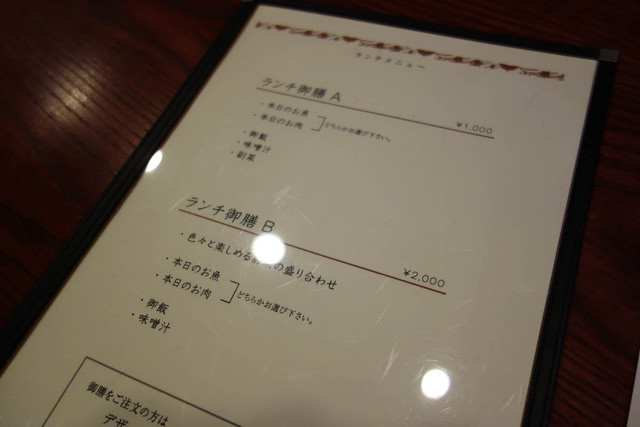 ランチメニュー
ランチ御膳 A ¥1,000
・本日のお魚
・本日のお肉
どちらかお選び下さい。
・御飯
・味噌汁
・副菜
ランチ御膳 B ¥2,000
・色々と楽しめる の盛り合わせ
・本日のお魚
・本日のお肉
どちらかお選び下さい。
・御飯
・味噌汁
御膳をご注文の方は
デザ